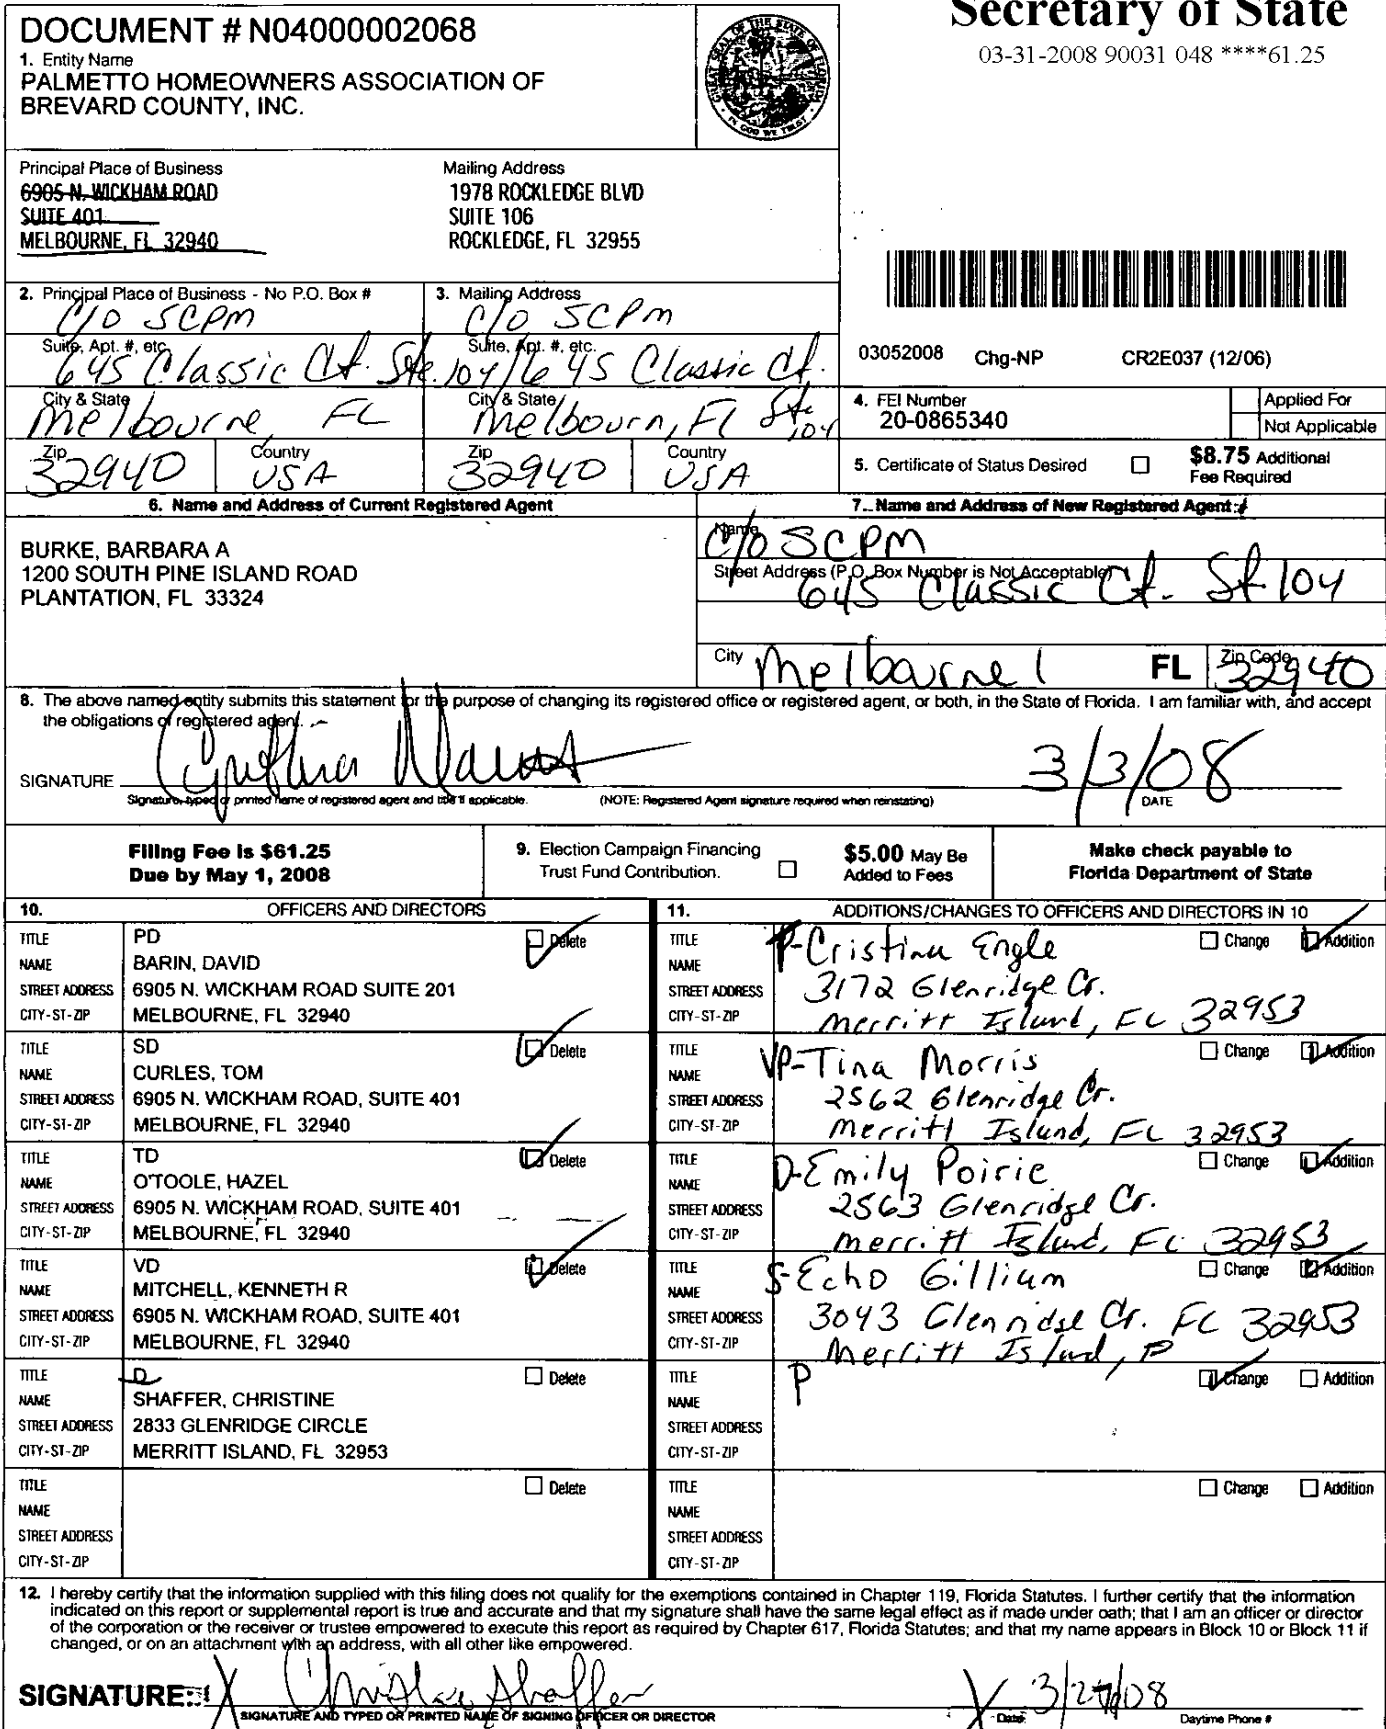 Secretary of State
03-31-2008 90031 048 ****61.25
DOCUMENT # N04000002068
1. Entity Name
PALMETTO HOMEOWNERS ASSOCIATION OF
BREVARD COUNTY, INC.
Principal Place of Business
6905 N. WICKHAM ROAD
SUITE 401
MELBOURNE, FL 32940
Mailing Address
1978 ROCKLEDGE BLVD
SUITE 106
ROCKLEDGE, FL 32955
2. Principal Place of Business - No P.O. Box #
C/O SCPM
Suite, Apt. #, etc.
645 Classic Ct. Ste. 104
City & State
Melbourne, FL
Zip
32940
Country
USA
3. Mailing Address
C/O SCPM
Suite, Apt. #, etc.
645 Classic Ct.
City & State
Melbourn, Fl Ste 104
Zip
32940
Country
USA
03052008 Chg-NP CR2E037 (12/06)
4. FEI Number
20-0865340
Applied For
Not Applicable
5. Certificate of Status Desired
$8.75 Additional
Fee Required
6. Name and Address of Current Registered Agent
BURKE, BARBARA A
1200 SOUTH PINE ISLAND ROAD
PLANTATION, FL 33324
7. Name and Address of New Registered Agent
Name
C/O SCPM
Street Address (P.O. Box Number is Not Acceptable)
645 Classic Ct. St 104
City Melbourne FL Zip Code 32940
8. The above named entity submits this statement for the purpose of changing its registered office or registered agent, or both, in the State of Florida. I am familiar with, and accept
the obligations of registered agent.
SIGNATURE
3/3/08
Signature, typed or printed name of registered agent and title if applicable. (NOTE: Registered Agent signature required when reinstating) DATE
Filing Fee is $61.25
Due by May 1, 2008
9. Election Campaign Financing
Trust Fund Contribution.
$5.00 May Be
Added to Fees
Make check payable to
Florida Department of State
10. OFFICERS AND DIRECTORS
TITLE PD Delete
NAME BARIN, DAVID
STREET ADDRESS 6905 N. WICKHAM ROAD SUITE 201
CITY-ST-ZIP MELBOURNE, FL 32940
TITLE SD Delete
NAME CURLES, TOM
STREET ADDRESS 6905 N. WICKHAM ROAD, SUITE 401
CITY-ST-ZIP MELBOURNE, FL 32940
TITLE TD Delete
NAME O'TOOLE, HAZEL
STREET ADDRESS 6905 N. WICKHAM ROAD, SUITE 401
CITY-ST-ZIP MELBOURNE, FL 32940
TITLE VD Delete
NAME MITCHELL, KENNETH R
STREET ADDRESS 6905 N. WICKHAM ROAD, SUITE 401
CITY-ST-ZIP MELBOURNE, FL 32940
TITLE D Delete
NAME SHAFFER, CHRISTINE
STREET ADDRESS 2833 GLENRIDGE CIRCLE
CITY-ST-ZIP MERRITT ISLAND, FL 32953
TITLE Delete
NAME
STREET ADDRESS
CITY-ST-ZIP
11. ADDITIONS/CHANGES TO OFFICERS AND DIRECTORS IN 10
TITLE Change Addition
NAME Cristina Engle
STREET ADDRESS 3172 Glenridge Cr.
CITY-ST-ZIP Merritt Island, FL 32953
TITLE Change Addition
NAME VP-Tina Morris
STREET ADDRESS 2562 Glenridge Cr.
CITY-ST-ZIP Merritt Island, FL 32953
TITLE Change Addition
NAME D-Emily Poirie
STREET ADDRESS 2563 Glenridge Cr.
CITY-ST-ZIP Merritt Island, FL 32953
TITLE Change Addition
NAME S-Echo Gillium
STREET ADDRESS 3043 Glenridge Cr. FL 32953
CITY-ST-ZIP Merritt Island,
TITLE P Change Addition
NAME
STREET ADDRESS
CITY-ST-ZIP
TITLE Change Addition
NAME
STREET ADDRESS
CITY-ST-ZIP
12. I hereby certify that the information supplied with this filing does not qualify for the exemptions contained in Chapter 119, Florida Statutes. I further certify that the information
indicated on this report or supplemental report is true and accurate and that my signature shall have the same legal effect as if made under oath; that I am an officer or director
of the corporation or the receiver or trustee empowered to execute this report as required by Chapter 617, Florida Statutes; and that my name appears in Block 10 or Block 11 if
changed, or on an attachment with an address, with all other like empowered.
SIGNATURE: X Christine Shaffer X 3/27/08
SIGNATURE AND TYPED OR PRINTED NAME OF SIGNING OFFICER OR DIRECTOR Date Daytime Phone #